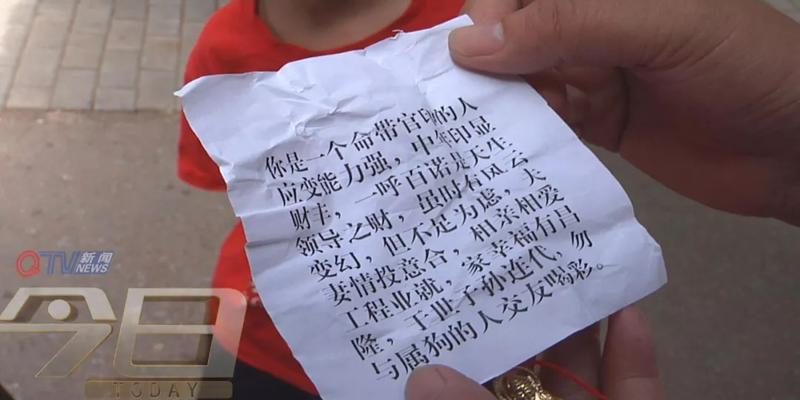 你是一个命带官印的人
应变能力强，中年印显
财丰，一呼百诺是天生
领导之财，虽时有风云
变幻，但不足为虑，夫
妻情投意合，相亲相爱
工程业就，家幸福有昌
隆，于世子孙迕代，勿
与属狗的人交友喝彩。
QTV新闻
NEWS
今日
TODAY